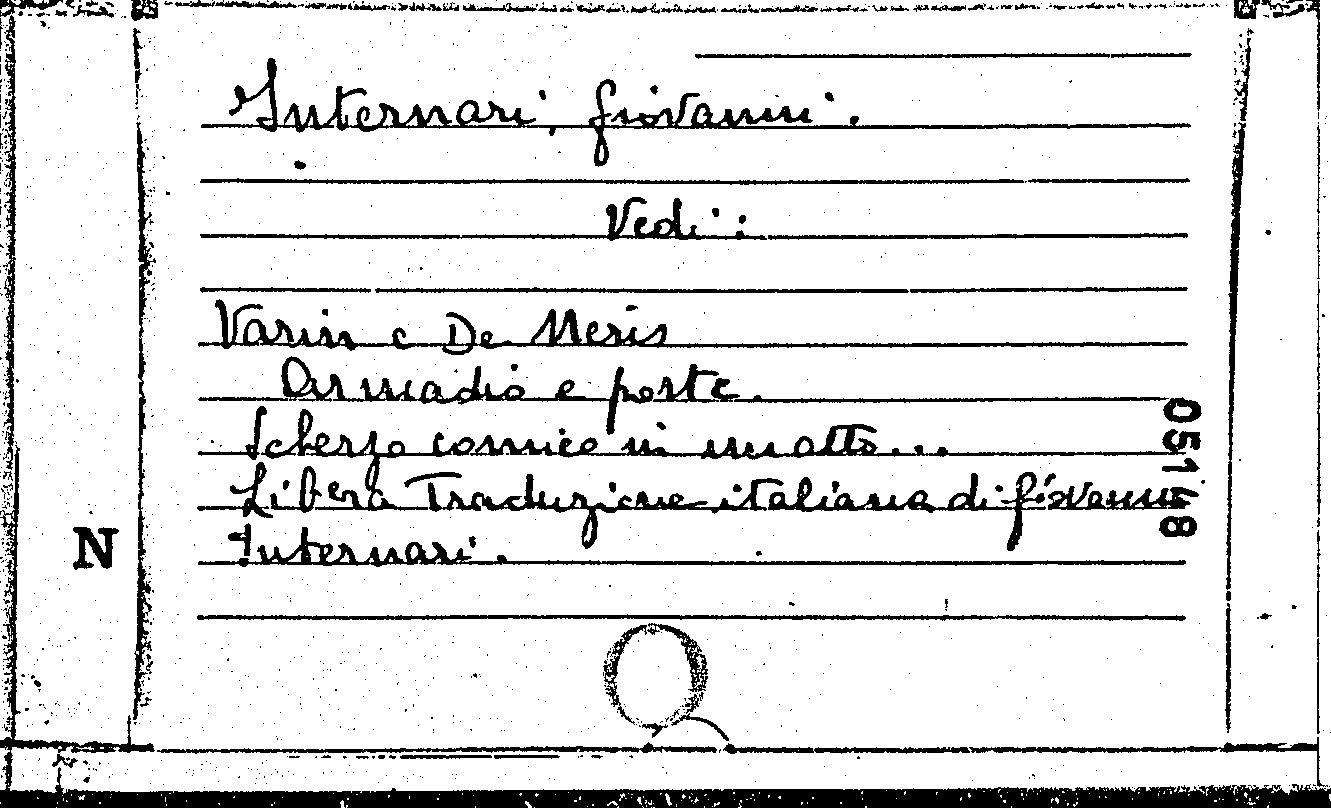 Internari, Giovanni.
Vedi:
Varin e De Neris
Armadio e porte.
Scherzo comico in un atto...
Libera Traduzione italiana di Giovanni
Internari.
N
05148